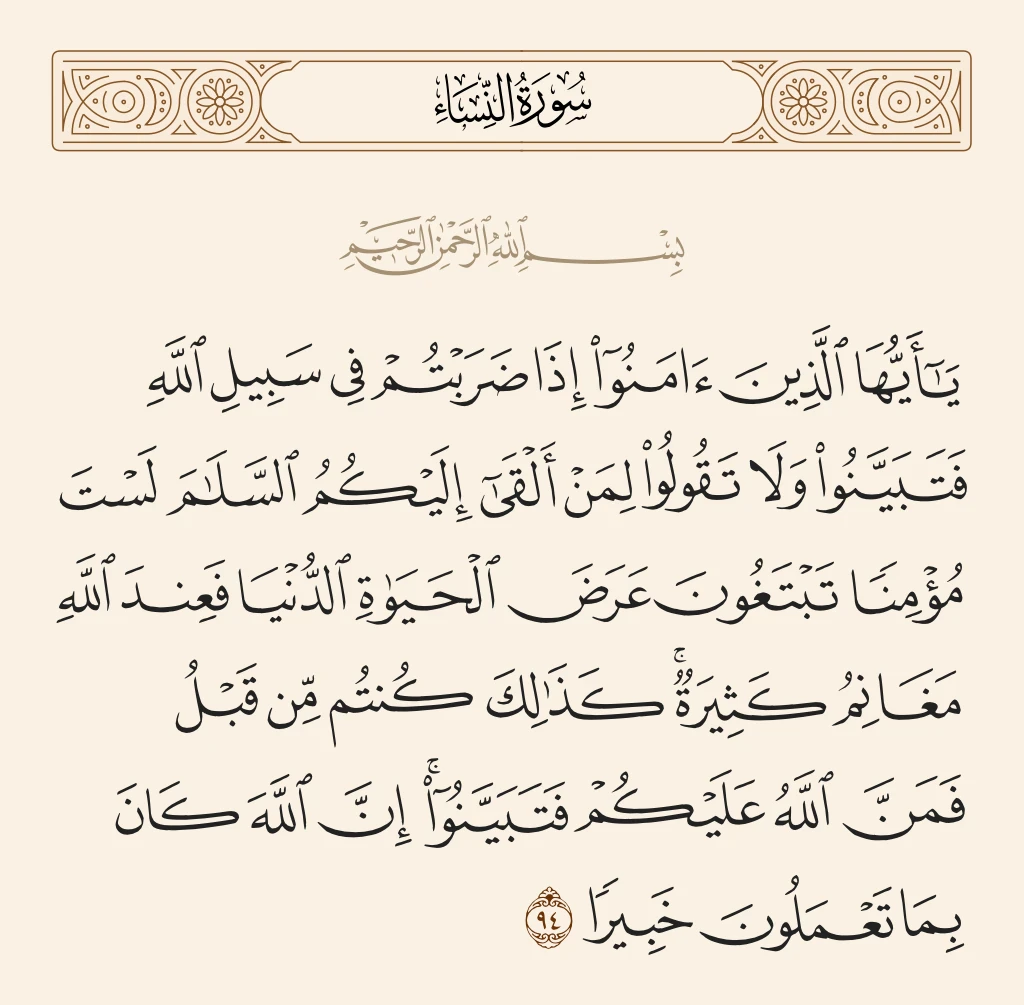 سُورَةُ النِّسَاءِ
بِسْمِ ٱللَّهِ ٱلرَّحْمَٰنِ ٱلرَّحِيمِ
يَٰٓأَيُّهَا ٱلَّذِينَ ءَامَنُوٓا۟ إِذَا ضَرَبْتُمْ فِى سَبِيلِ ٱللَّهِ
فَتَبَيَّنُوا۟ وَلَا تَقُولُوا۟ لِمَنْ أَلْقَىٰٓ إِلَيْكُمُ ٱلسَّلَٰمَ لَسْتَ
مُؤْمِنًا تَبْتَغُونَ عَرَضَ ٱلْحَيَوٰةِ ٱلدُّنْيَا فَعِندَ ٱللَّهِ
مَغَانِمُ كَثِيرَةٌ ۚ كَذَٰلِكَ كُنتُم مِّن قَبْلُ
فَمَنَّ ٱللَّهُ عَلَيْكُمْ فَتَبَيَّنُوٓا۟ ۚ إِنَّ ٱللَّهَ كَانَ
بِمَا تَعْمَلُونَ خَبِيرًا ٩٤